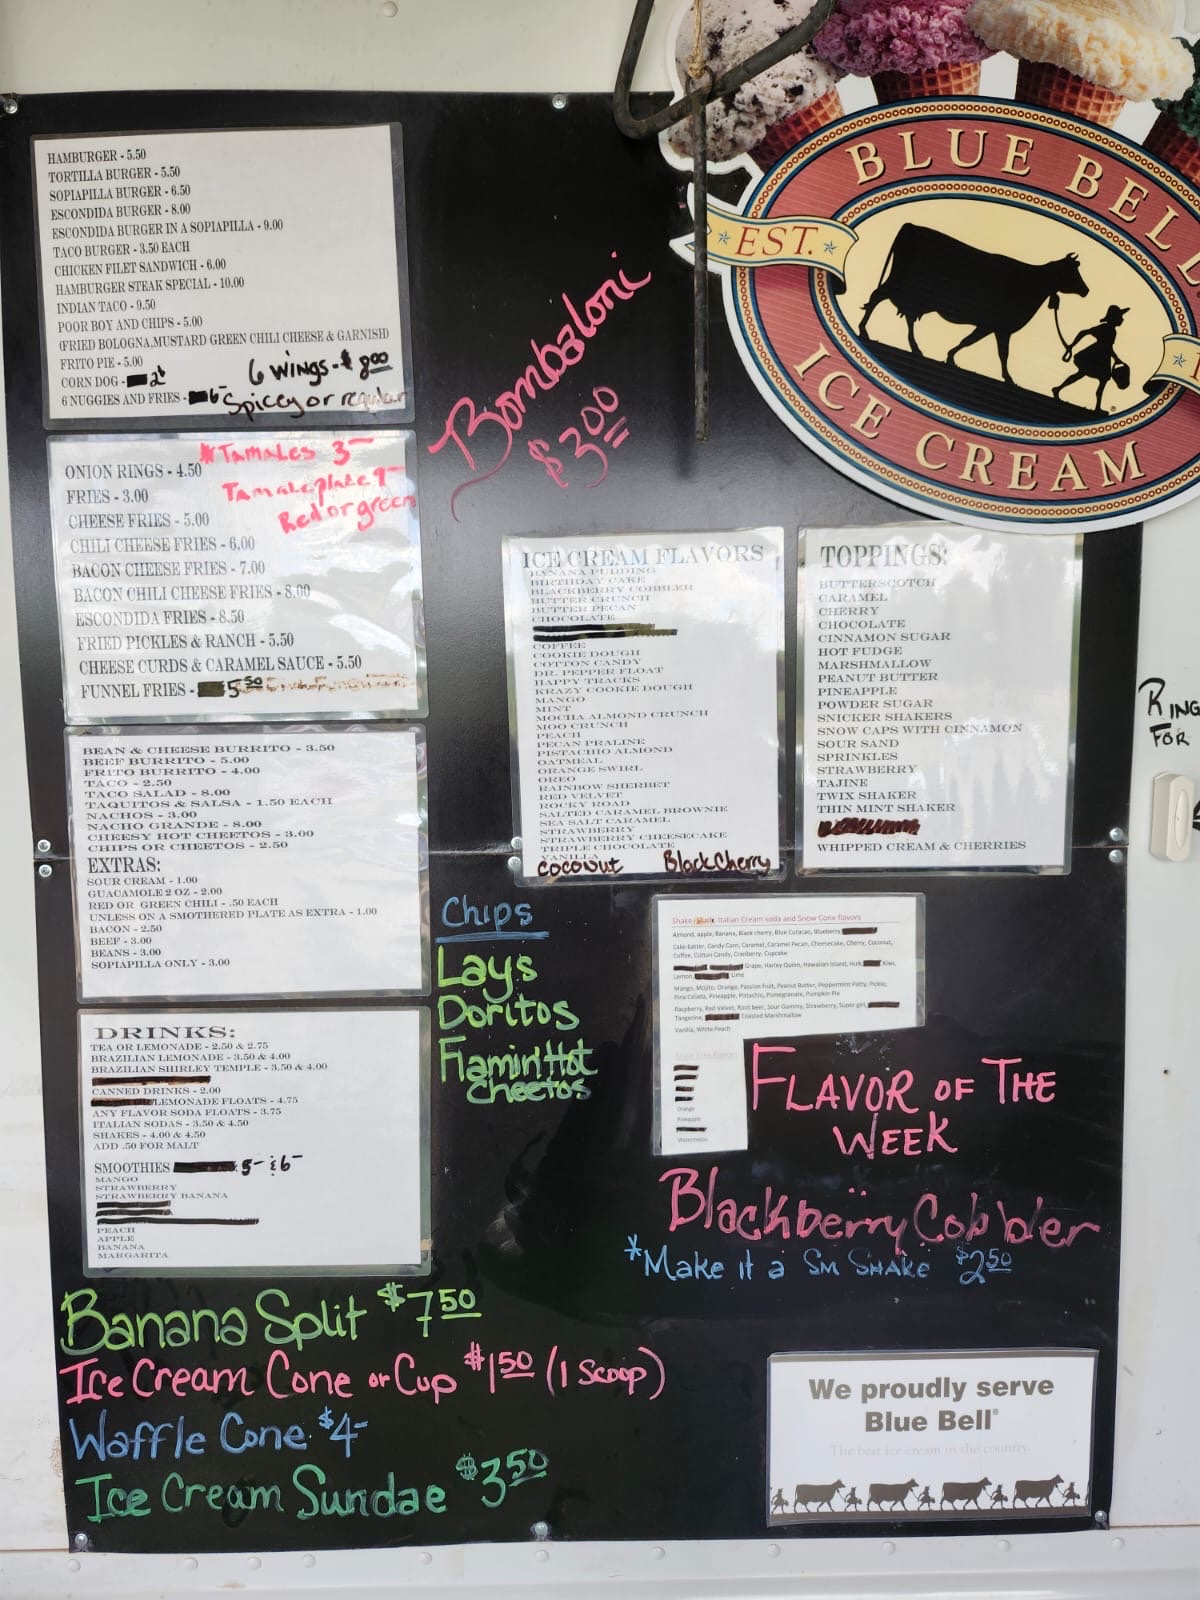 HAMBURGER - 5.50
TORTILLA BURGER - 5.50
SOPIAPILLA BURGER - 6.50
ESCONDIDA BURGER - 8.00
ESCONDIDA BURGER IN A SOPIAPILLA - 9.00
TACO BURGER - 3.50 EACH
CHICKEN FILET SANDWICH - 6.00
HAMBURGER STEAK SPECIAL - 10.00
INDIAN TACO - 9.50
POOR BOY AND CHIPS - 5.00
(FRIED BOLOGNA,MUSTARD GREEN CHILI CHEESE & GARNISH)
FRITO PIE - 5.00
6 WINGS - $8.00
CORN DOG -
6 NUGGIES AND FRIES - 6-
Spiccy or regular
*TAMALES 3-
Tamale plate 9-
Red or green
ONION RINGS - 4.50
FRIES - 3.00
CHEESE FRIES - 5.00
CHILI CHEESE FRIES - 6.00
BACON CHEESE FRIES - 7.00
BACON CHILI CHEESE FRIES - 8.00
ESCONDIDA FRIES - 8.50
FRIED PICKLES & RANCH - 5.50
CHEESE CURDS & CARAMEL SAUCE - 5.50
FUNNEL FRIES - 5.50
BEAN & CHEESE BURRITO - 3.50
BEEF BURRITO - 5.00
FRITO BURRITO - 4.00
TACO - 2.50
TACO SALAD - 8.00
TAQUITOS & SALSA - 1.50 EACH
NACHOS - 3.00
NACHO GRANDE - 8.00
CHEESY HOT CHEETOS - 3.00
CHIPS OR CHEETOS - 2.50
EXTRAS:
SOUR CREAM - 1.00
GUACAMOLE 2 OZ - 2.00
RED OR GREEN CHILI - .50 EACH
UNLESS ON A SMOTHERED PLATE AS EXTRA - 1.00
BACON - 2.50
BEEF - 3.00
BEANS - 3.00
SOPIAPILLA ONLY - 3.00
DRINKS:
TEA OR LEMONADE - 2.50 & 2.75
BRAZILIAN LEMONADE - 3.50 & 4.00
BRAZILIAN SHIRLEY TEMPLE - 3.50 & 4.00
CANNED DRINKS - 2.00
LEMONADE FLOATS - 4.75
ANY FLAVOR SODA FLOATS - 3.75
ITALIAN SODAS - 3.50 & 4.50
SHAKES - 4.00 & 4.50
ADD .50 FOR MALT
SMOOTHIES 5- & 6-
MANGO
STRAWBERRY
STRAWBERRY BANANA
PEACH
APPLE
BANANA
MARGARITA
Bombaloni
$3.00
BLUE BELL
EST.
ICE CREAM
ICE CREAM FLAVORS
BANANA PUDDING
BIRTHDAY CAKE
BLACKBERRY COBBLER
BUTTER CRUNCH
BUTTER PECAN
CHOCOLATE
COFFEE
COOKIE DOUGH
COTTON CANDY
DR. PEPPER FLOAT
HAPPY TRACKS
KRAZY COOKIE DOUGH
MANGO
MINT
MOCHA ALMOND CRUNCH
MOO CRUNCH
PEACH
PECAN PRALINE
PISTACHIO ALMOND
OATMEAL
ORANGE SWIRL
OREO
RAINBOW SHERBET
RED VELVET
ROCKY ROAD
SALTED CARAMEL BROWNIE
SEA SALT CARAMEL
STRAWBERRY
STRAWBERRY CHEESECAKE
TRIPLE CHOCOLATE
VANILLA
COCONUT Black Cherry
TOPPINGS:
BUTTERSCOTCH
CARAMEL
CHERRY
CHOCOLATE
CINNAMON SUGAR
HOT FUDGE
MARSHMALLOW
PEANUT BUTTER
PINEAPPLE
POWDER SUGAR
SNICKER SHAKERS
SNOW CAPS WITH CINNAMON
SOUR SAND
SPRINKLES
STRAWBERRY
TAJINE
TWIX SHAKER
THIN MINT SHAKER
WHIPPED CREAM & CHERRIES
RING
FOR
Chips
Lays
Doritos
Flamin' Hot
Cheetos
Shake /Slush, Italian Cream soda and Snow Cone flavors
Almond, apple, Banana, Black cherry, Blue Curacao, Blueberry
Cake batter, Candy Corn, Caramel, Caramel Pecan, Cheesecake, Cherry, Coconut,
Coffee, Cotton Candy, Cranberry, Cupcake
Grape, Harley Quinn, Hawaiian Island, Hulk, Kiwi,
Lemon, Lime
Mango, Mojito, Orange, Passion fruit, Peanut Butter, Peppermint Patty, Pickle,
Pina Colada, Pineapple, Pistachio, Pomegranate, Pumpkin Pie
Raspberry, Red Velvet, Root beer, Sour Gummy, Strawberry, Super girl,
Tangerine, Toasted Marshmallow
Vanilla, White Peach
Sugar Free Flavors
Orange
Pineapple
Watermelon
FLAVOR OF THE
WEEK
Blackberry Cobbler
*MAKE IT A SM SHAKE $2.50
Banana Split $7.50
Ice Cream Cone or Cup $1.50 (1 Scoop)
Waffle Cone $4-
Ice Cream Sundae $3.50
We proudly serve
Blue Bell®
The best ice cream in the country.